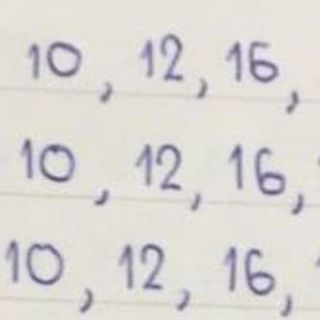 10, 12, 16,
10, 12, 16,
10, 12, 16,